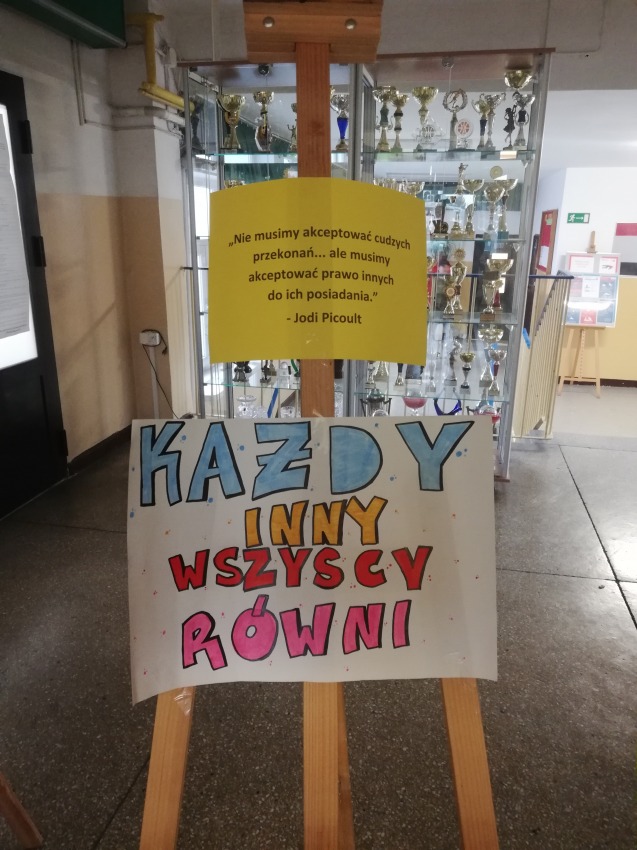 „Nie musimy akceptować cudzych
przekonań... ale musimy
akceptować prawo innych
do ich posiadania.”
- Jodi Picoult
KAŻDY
INNY
WSZYSCY
RÓWNI